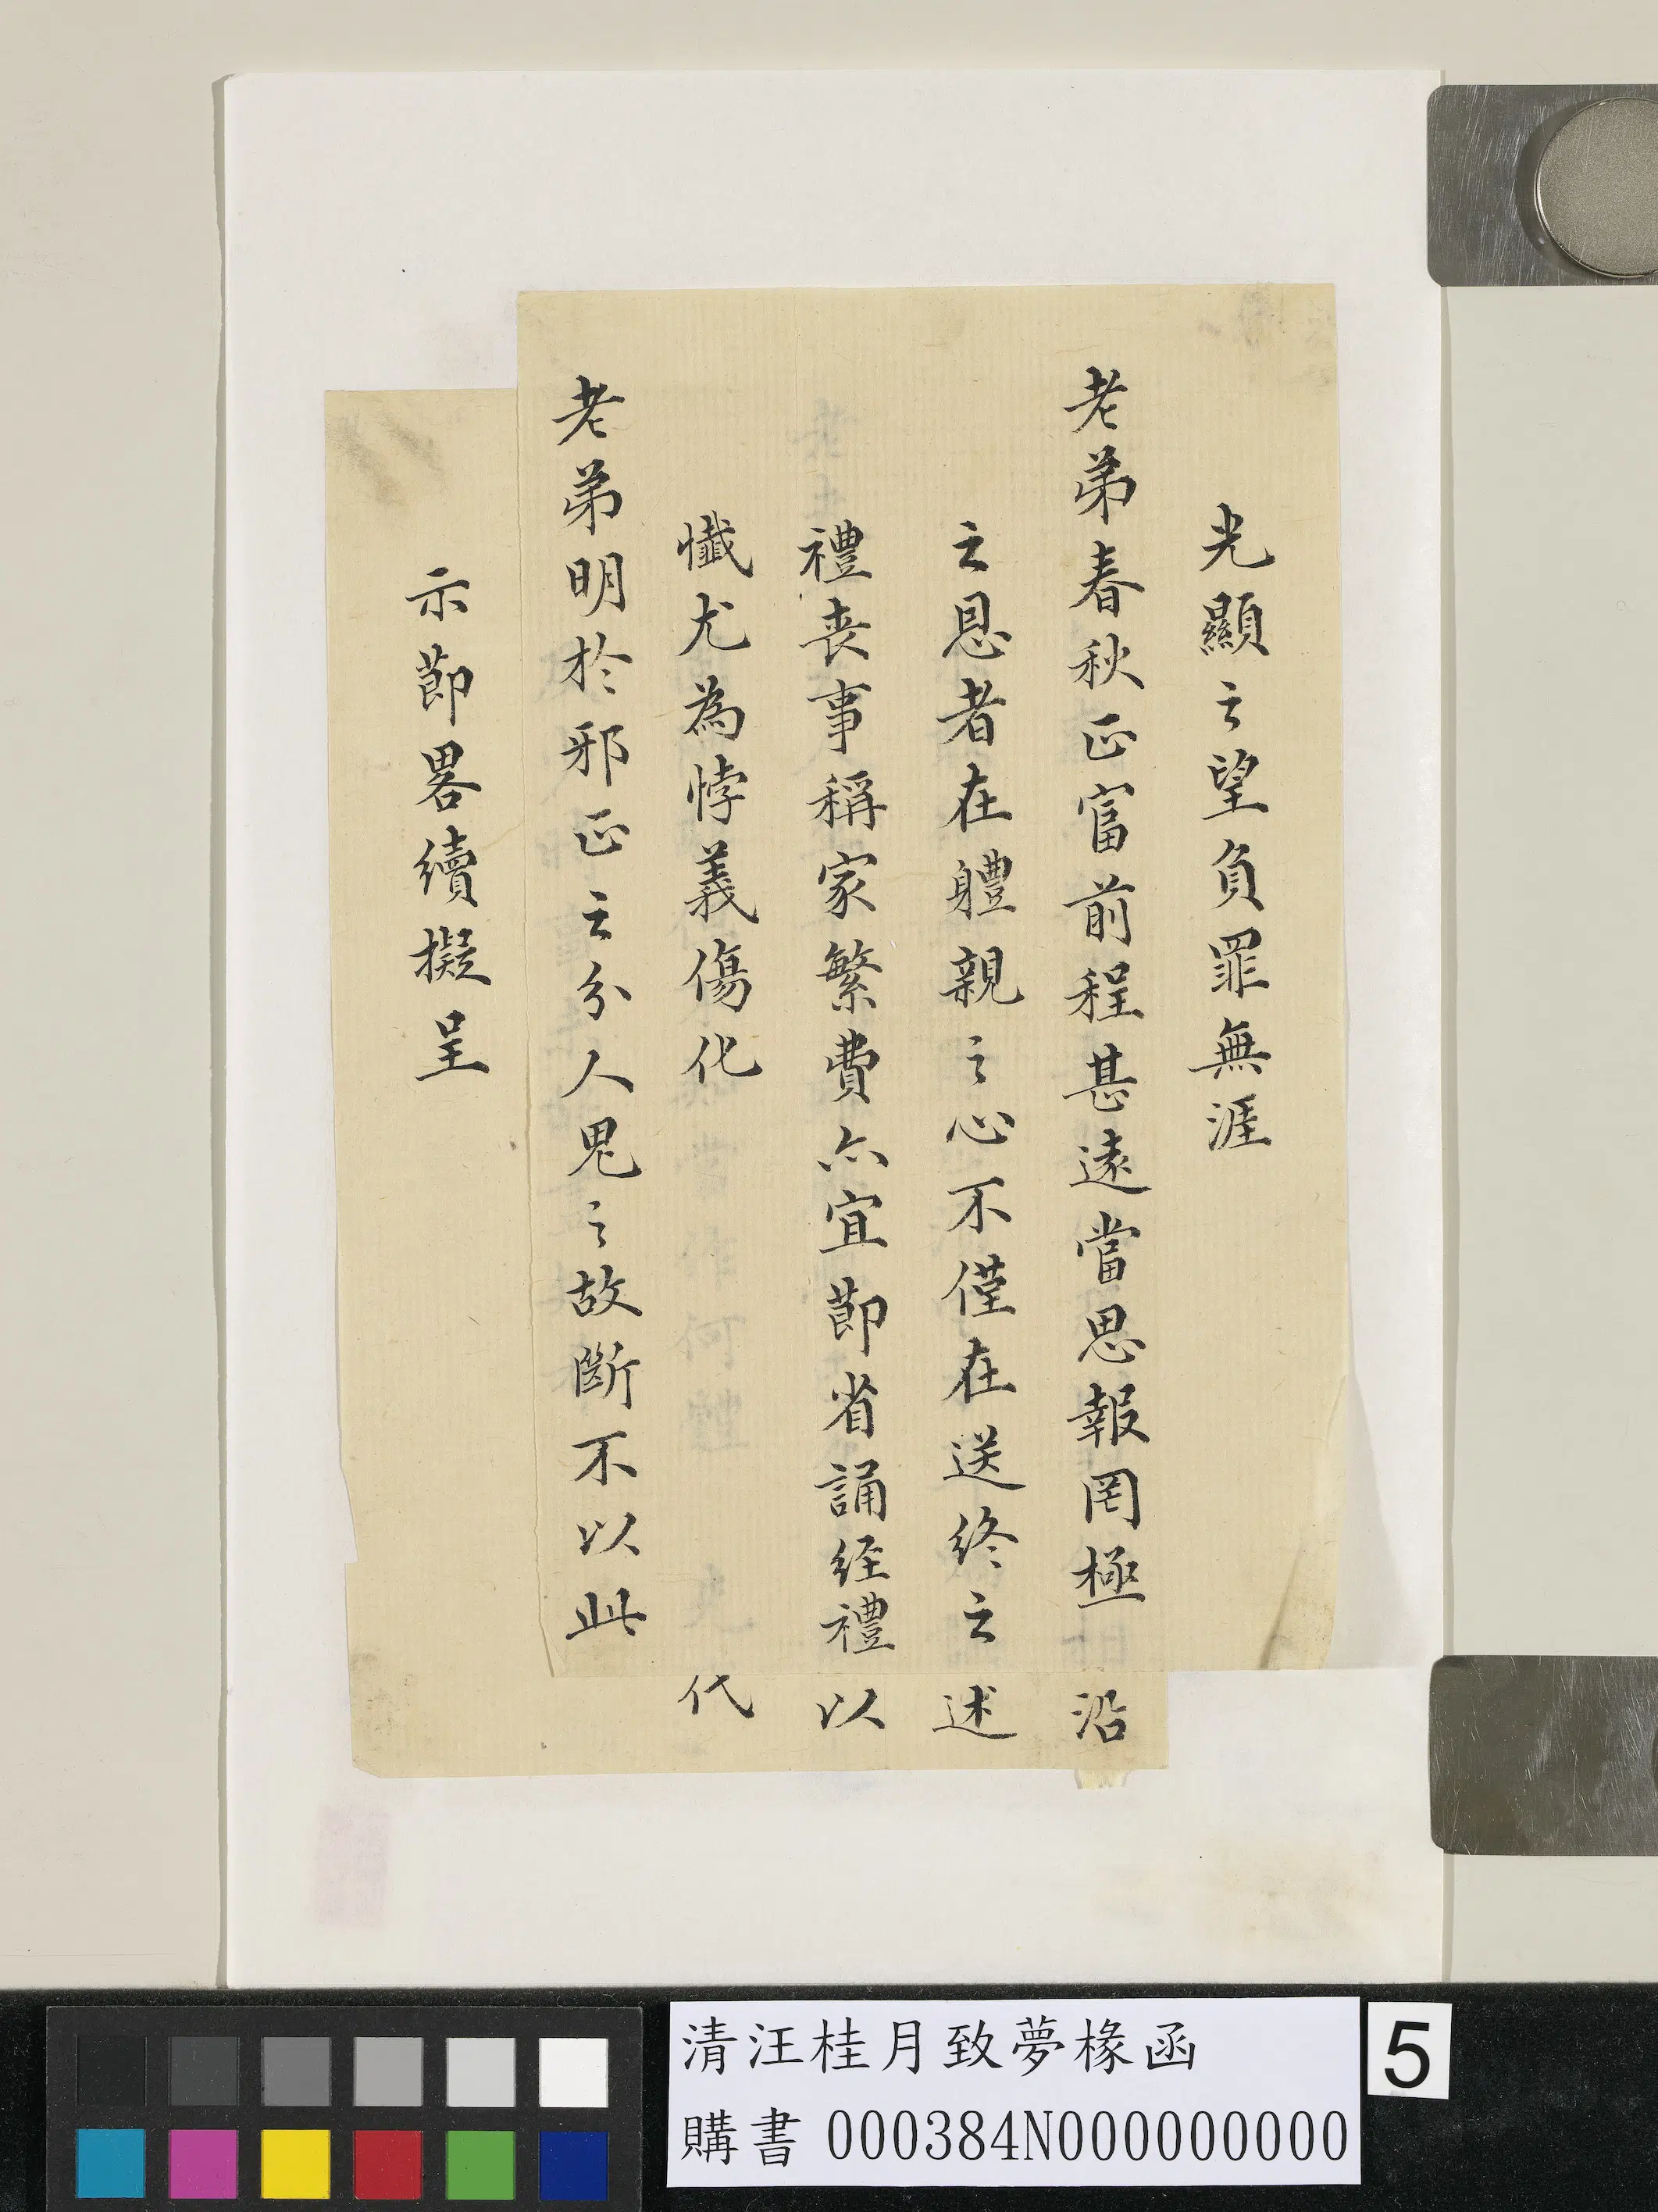 光顯之望負罪無涯
老弟春秋正富前程甚遠當思報罔極
之恩者在軆親之心不僅在送終之
禮丧事稱家繁費亦宜莭省誦經禮
懺尤為悖義傷化
老弟明於邪正之分人鬼之故斷不以此
沿
述
以
代
示莭畧續擬呈
清汪桂月致夢椽函
購書 000384N000000000
5